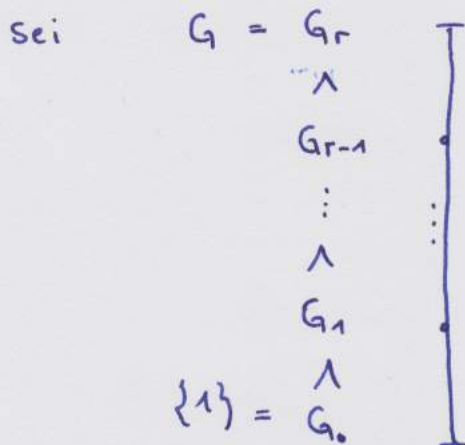 Sei G = Gr
∧
Gr-1
⋮
∧
G1
∧
{1} = G0